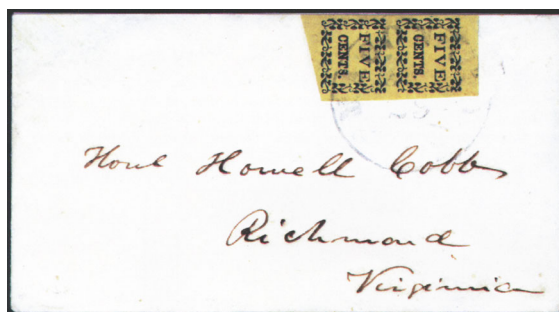 FIVE
CENTS.
FIVE
CENTS.
Honl Howell Cobb
Richmond
Virginia